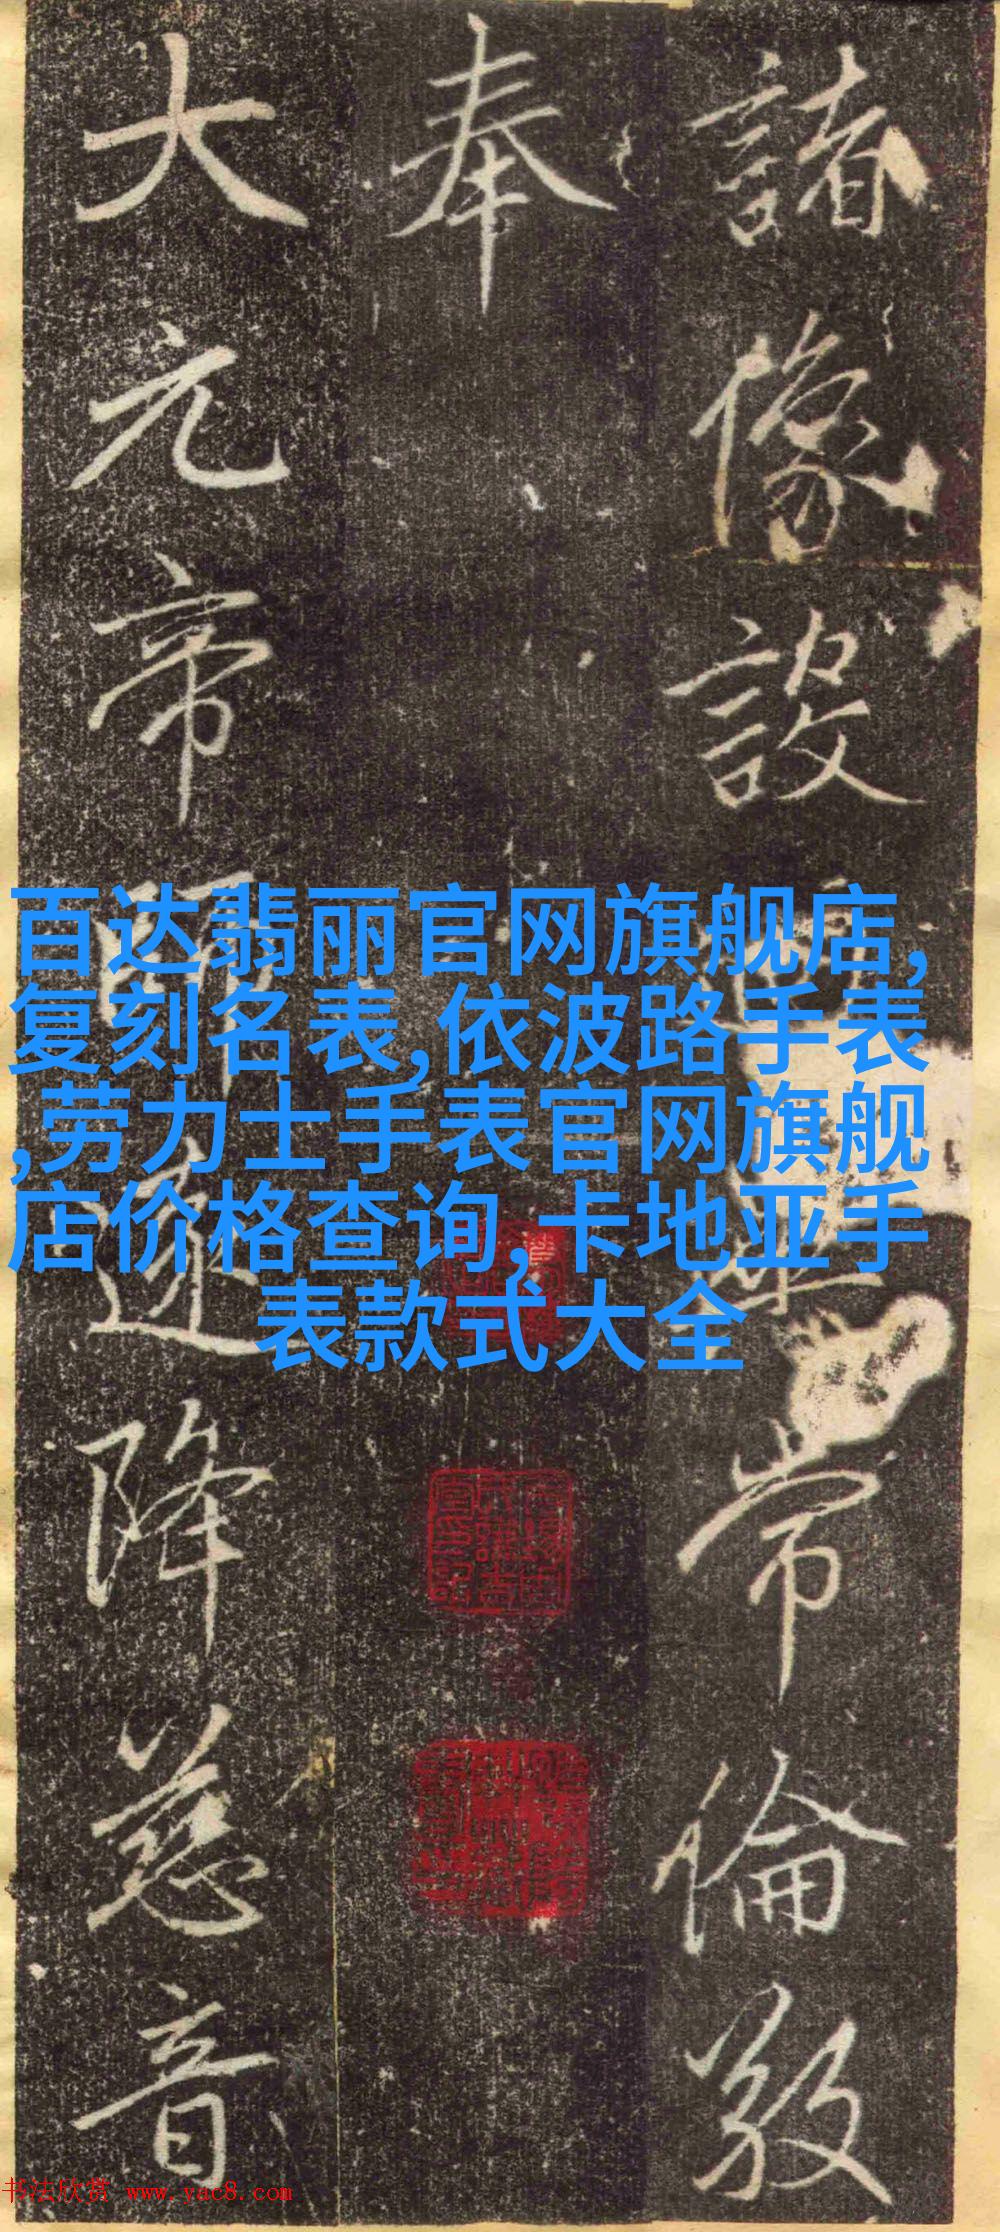 諸像設
常倫
奉
大元帝
降慈音
百达翡丽官网旗舰店,
复刻名表,依波路手表
,劳力士手表官网旗舰
店价格查询,卡地亚手
表款式大全
书法欣赏 www.yac8.com